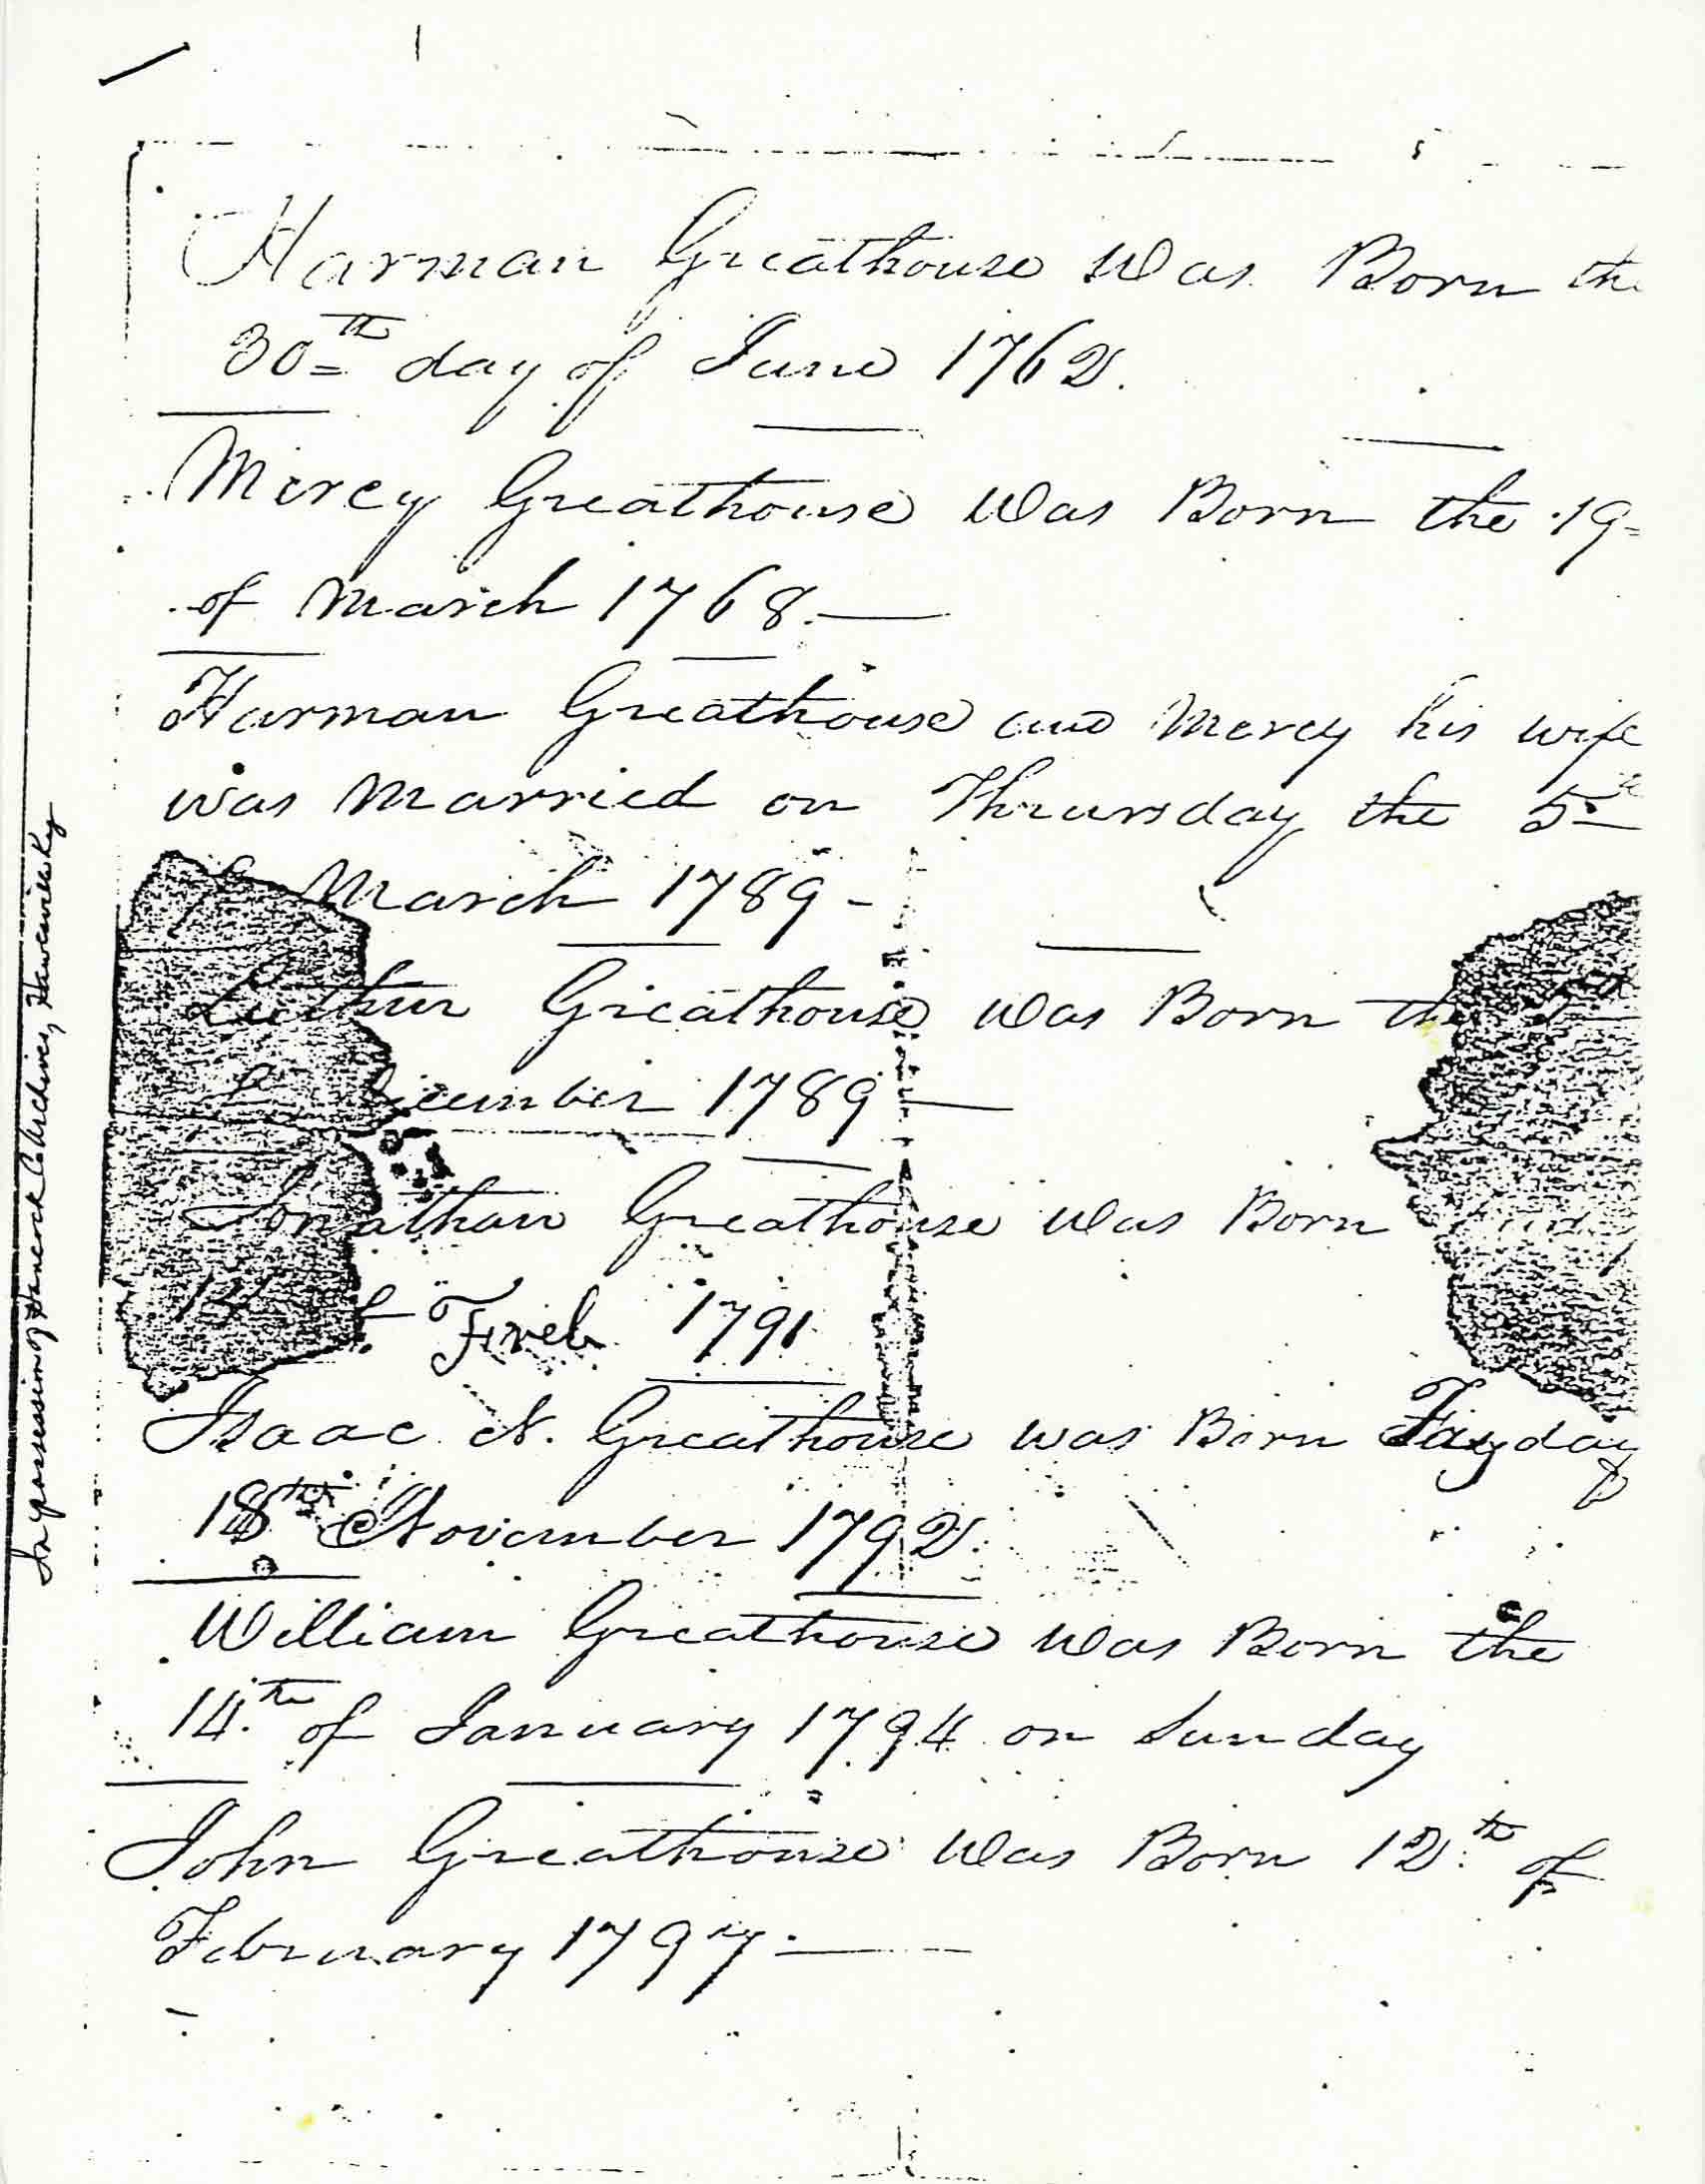 Harman Greathouse was Born the
30th day of June 1762.
Mercy Greathouse was Born the 19
of March 1768.
Harman Greathouse and Mercy his wife
was Married on Thursday the 5th
of March 1789 -
Luther Greathouse was Born the
December 1789
Jonathan Greathouse was Born
1791
Isaac N. Greathouse was Born
18th November 1792.
William Greathouse was Born the
14th of January 1794 on Sunday
John Greathouse was Born 12th of
February 1797.
In possession of Hancock Co Archives, Hawesville Ky